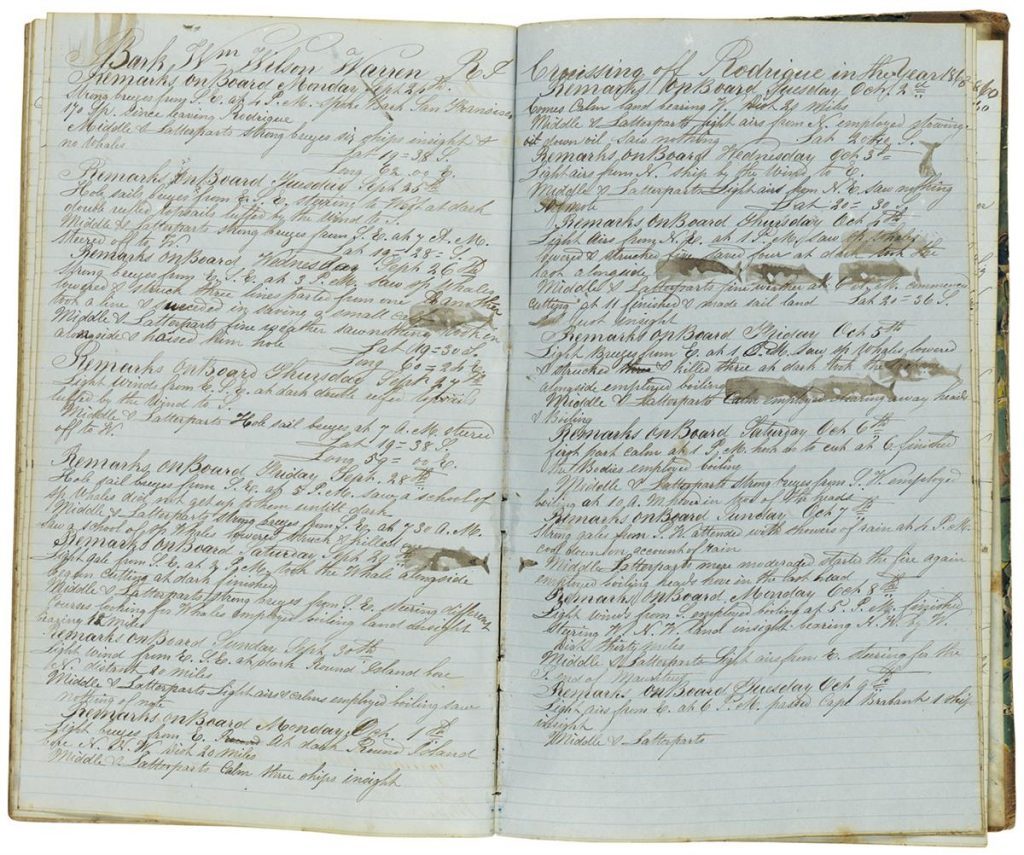 Bark Wm Wilson Warren R I
Remarks on Board Monday Sept 24th
Strong breezes from S. E. at 4 P. M. spoke Bach San Francisco
170 Sp. since leaving Rodrigue
Middle & Latterparts strong breezes six ships insight &
no Whales
Lat 19=38 S.
Long 62.00 E.
Remarks on Board Tuesday Sept 25th
Hole sails breezes from E. S. E. steering to West at dark
double reefed topsails luffed by the Wind to S.
Middle & Latterparts strong breezes from S. E. at 7 A. M.
steered off to W. Lat 19=28= S.
Remarks on Board Wednesday Sept 26th
strong breezes from E. S. E. at 3 P. M. saw sp whales
lowered & struck three lines parted from one & another
took a line & succeded in saving a small
Middle & Latterparts fine weather saw nothing
alongside & hoised him hole
Lat 19=30 S.
Long 60=24 E.
Remarks on Board Thursday Sept 27th
Light Winds from E. S. E. at dark double reefed topsails
luffed by the Wind to S.
Middle & Latterparts Hole sail breezes at 7 A. M. steered
off to W.
Lat 19=38 S.
Long 59=00 E.
Remarks on Board Friday Sept. 28th
Hole sail breezes from S. E. at 5 P. M. saw a school of
sp Whales did not get up to them untill dark
Middle & Latterparts strong breezes from S. E. at 7 30 A. M.
saw a school of sp Whales lowered struck & killed
Remarks on Board Saturday Sept 29th
Light gale from S. E. at 2 P. M. took the Whale alongside
began cutting at dark finished
Middle & Latterparts strong breezes from S. E. steering different
courses looking for Whales employed boiling land insight
Remarks on Board Sunday Sept 30th
Light Wind from E. S. E. at dark Round Island bore
N. distant 20 miles
Middle & Latterparts Light airs & calms employed boiling saw
nothing of note
Remarks on Board Monday Oct. 1th
Light breezes from E. at dark Round Island
bore N. N. W. dist 20 miles
Middle & Latterparts Calm three ships insight
Cruissing off Rodrigue in the Year 1860
Remarks on Board Tuesday Oct 2th
Comes Calm land bearing W. dist 20 miles
Middle & Latterparts light airs from N. employed stowing
down oil Saw nothing Lat 20=12 S.
Remarks on Board Wednesday Oct 3th
Light airs from N. ship by the Wind to E.
Middle & Latterparts Light airs from N. E. saw nothing
of note Lat 20=30 S.
Remarks on Board Thursday Oct 4th
Light airs from N. E. at 1 P. M. saw sp whales
lowered & strucked five and four at dark took the
last alongside
Middle & Latterparts fine weather at A. M. commenced
cutting at 11 finished & made sail land Lat 20=36 S.
just insight
Remarks on Board Friday Oct 5th
Light Breezes from E. at 1 P. M. saw sp Whales lowered
& strucked & killed three at dark took the
alongside employed boiling
Middle & Latterparts Calm employed clearing away heads
& Boiling
Remarks on Board Saturday Oct 6th
first part calm at 1 P. M. hook on to cut at 6 finished
the Bodies employed boiling
Middle & Latterparts strong breezes from S. W. employed
boiling at 10 A. M. hove in two of the heads
Remarks on Board Sunday Oct 7th
Strong gales from S. W. attended with showers of rain at 4 P. M.
cool down on account of rain
Middle Latterparts more moderated started the fire again
employed boiling heads hove in the last head
Remarks on Board Monday Oct 8th
Light winds from S. employed boiling at 5 P. M. finished
Steering W. N. W. land insight bearing N. W. by W.
dist thirty miles
Middle & Latterparts Light airs from E. steering for the
S. end of Mauritius
Remarks on Board Tuesday Oct 9th
Light airs from E. at 6 P. M. passed Cape Brabant 1 ship
insight
Middle & Latterparts